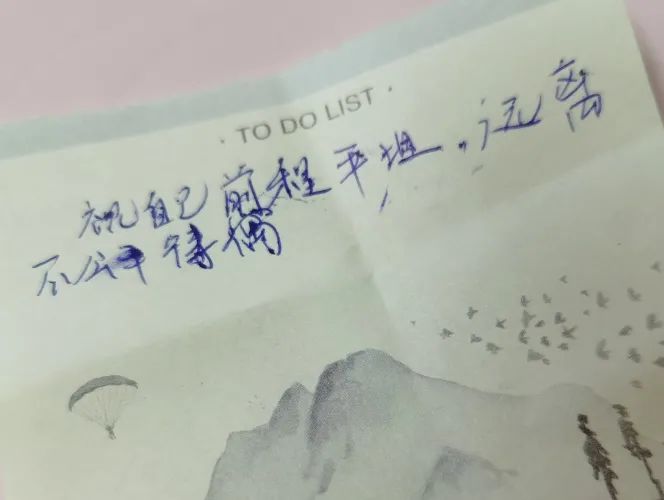 · TO DO LIST ·
祝自己前程平坦，远离
不公平待偶